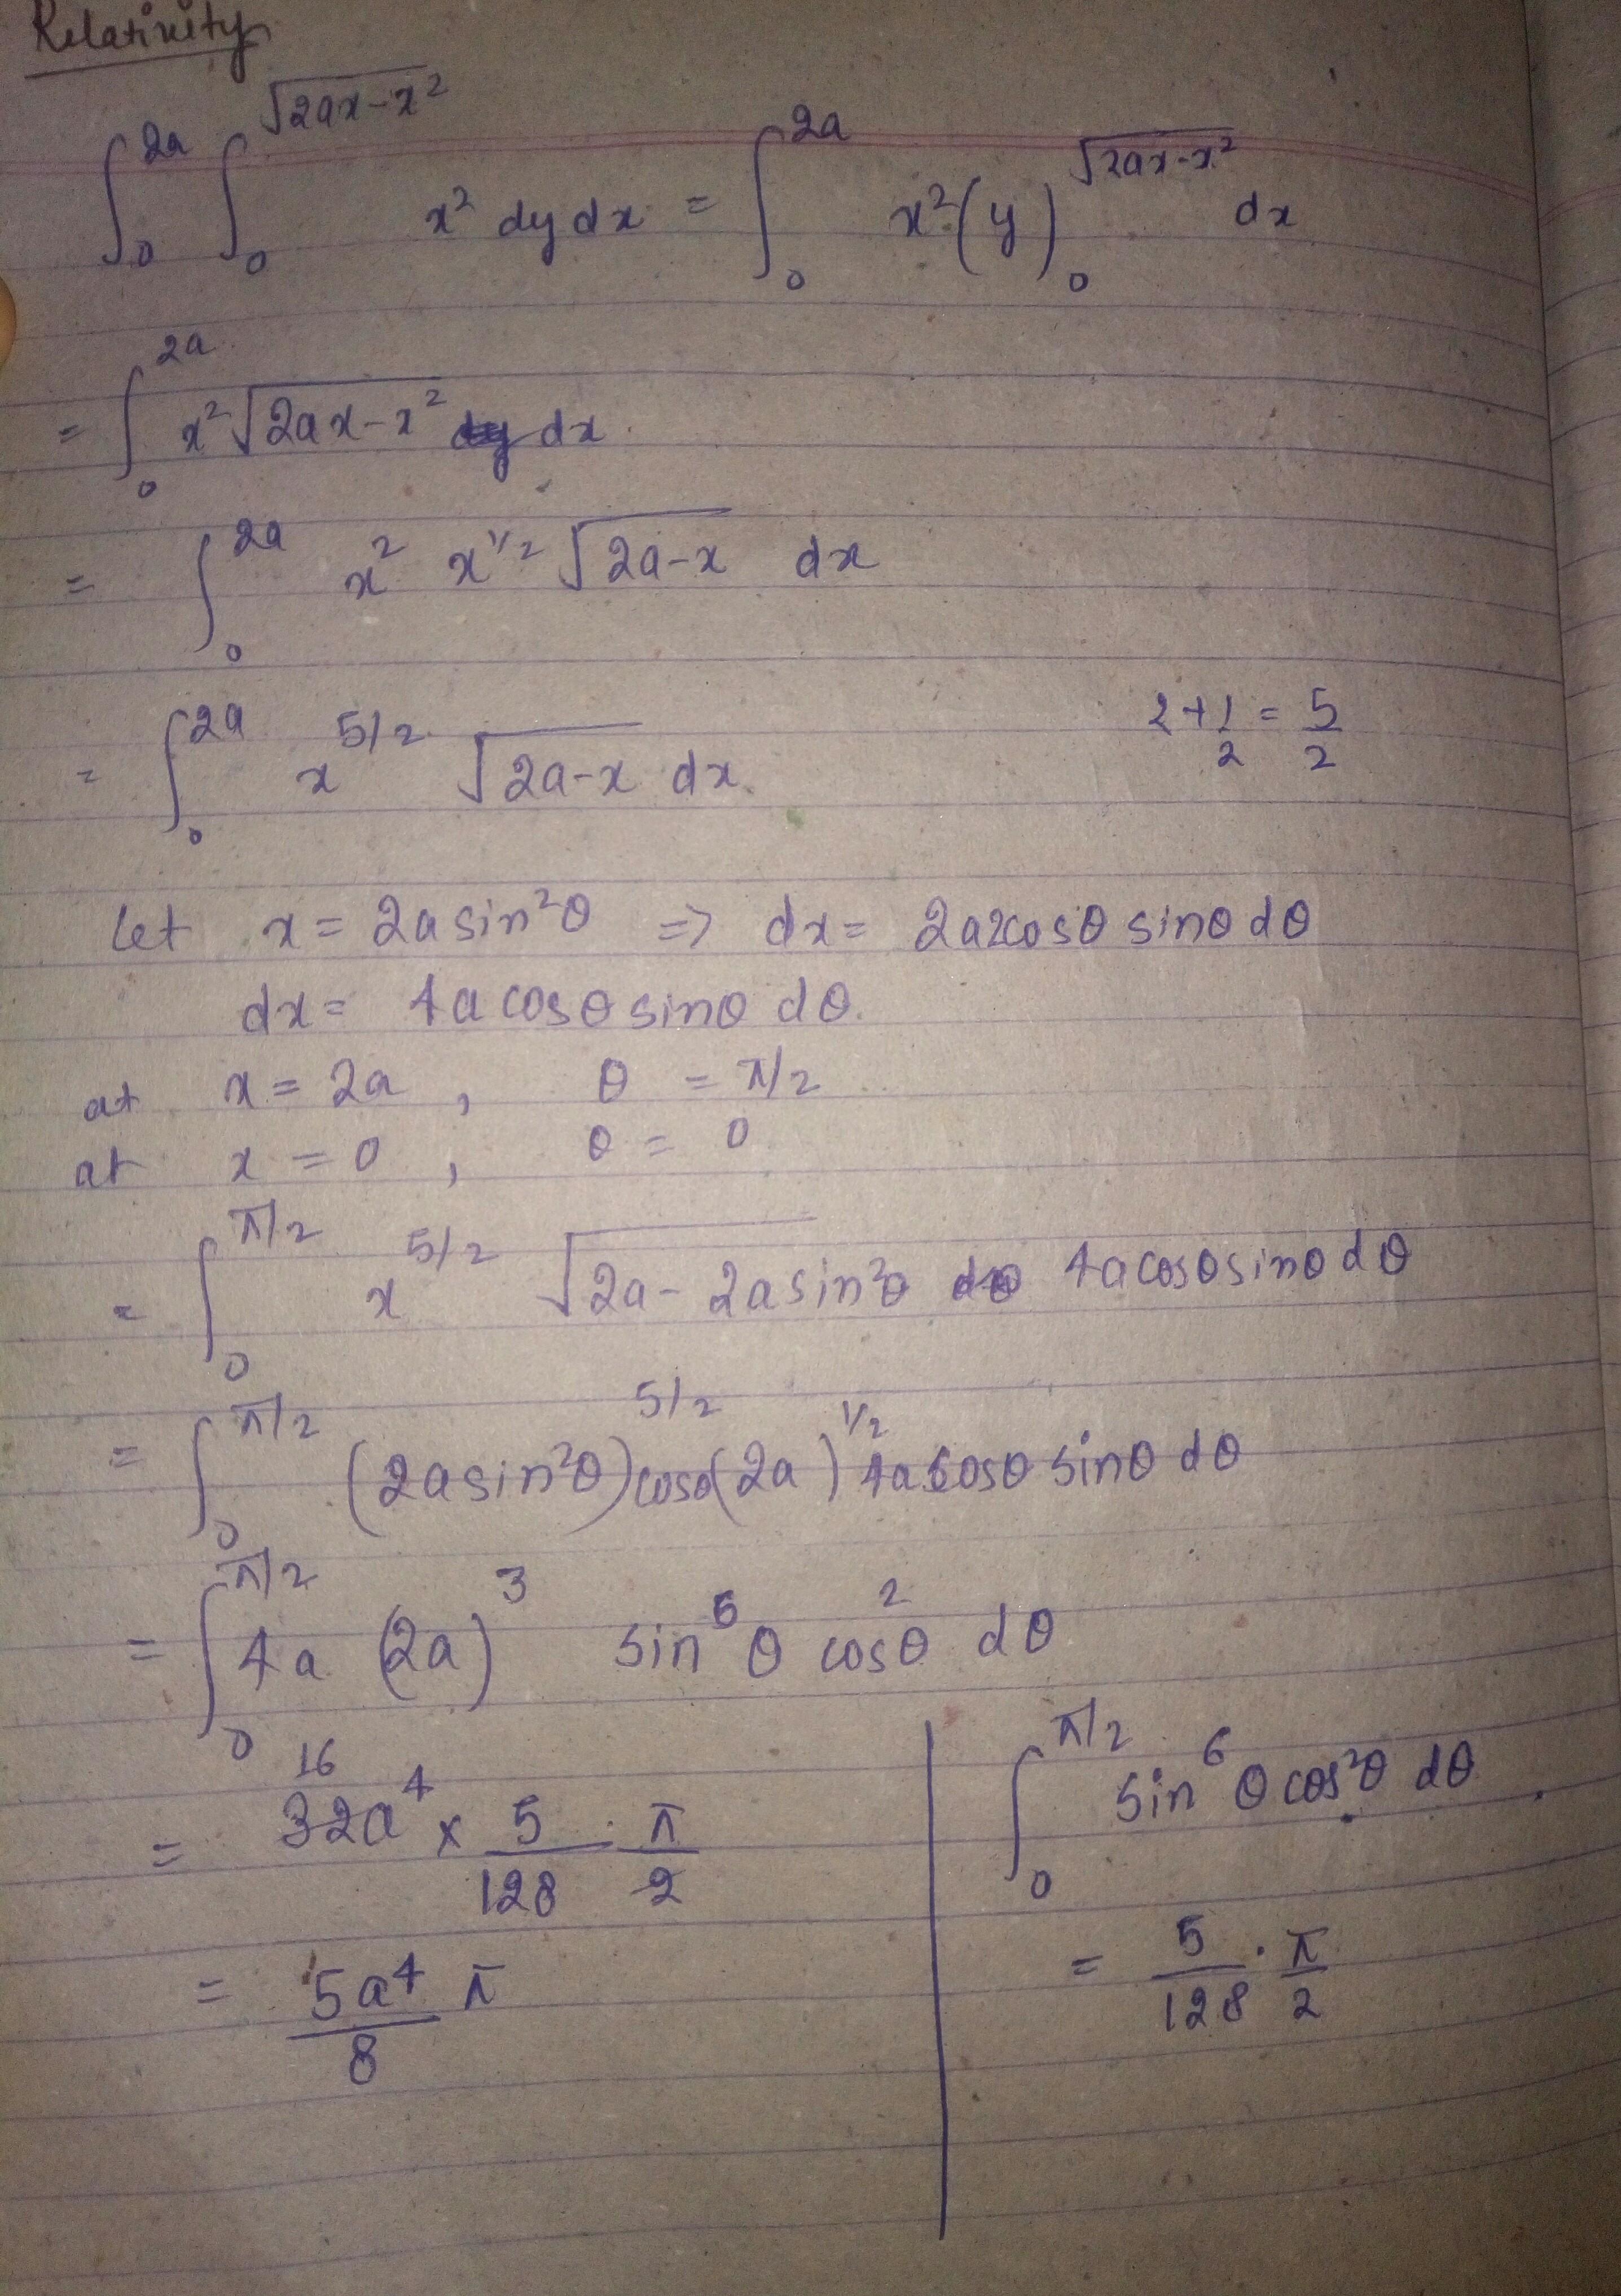 Relativity
∫₀^{2a} ∫₀^{√(2ax-x²)} x² dy dx = ∫₀^{2a} x² (y)₀^{√(2ax-x²)} dx
= ∫₀^{2a} x² √(2ax-x²) dx
= ∫₀^{2a} x² x^{1/2} √(2a-x) dx
= ∫₀^{2a} x^{5/2} √(2a-x) dx. 2+1/2 = 5/2
Let x = 2a sin²θ => dx = 2a2cosθ sinθ dθ
dx = 4a cosθ sinθ dθ.
at x = 2a , θ = π/2
at x = 0 , θ = 0
= ∫₀^{π/2} x^{5/2} √(2a - 2a sin²θ) 4a cosθ sinθ dθ
= ∫₀^{π/2} (2a sin²θ)^{5/2} cosθ (2a)^{1/2} 4a cosθ sinθ dθ
= ∫₀^{π/2} 4a (2a)³ sin⁶θ cos²θ dθ
16
= 32a⁴ × 5/128 · π/2
= 5a⁴/8 π
∫₀^{π/2} sin⁶θ cos²θ dθ
= 5/128 · π/2